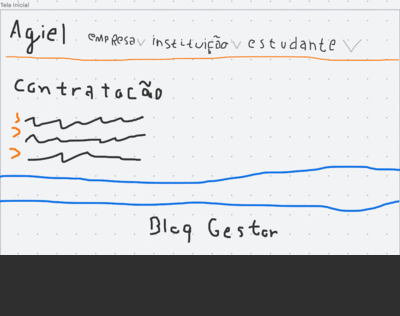 Tela Inicial
Agiel empresa instituição estudante
Contratação
Blog Gestor